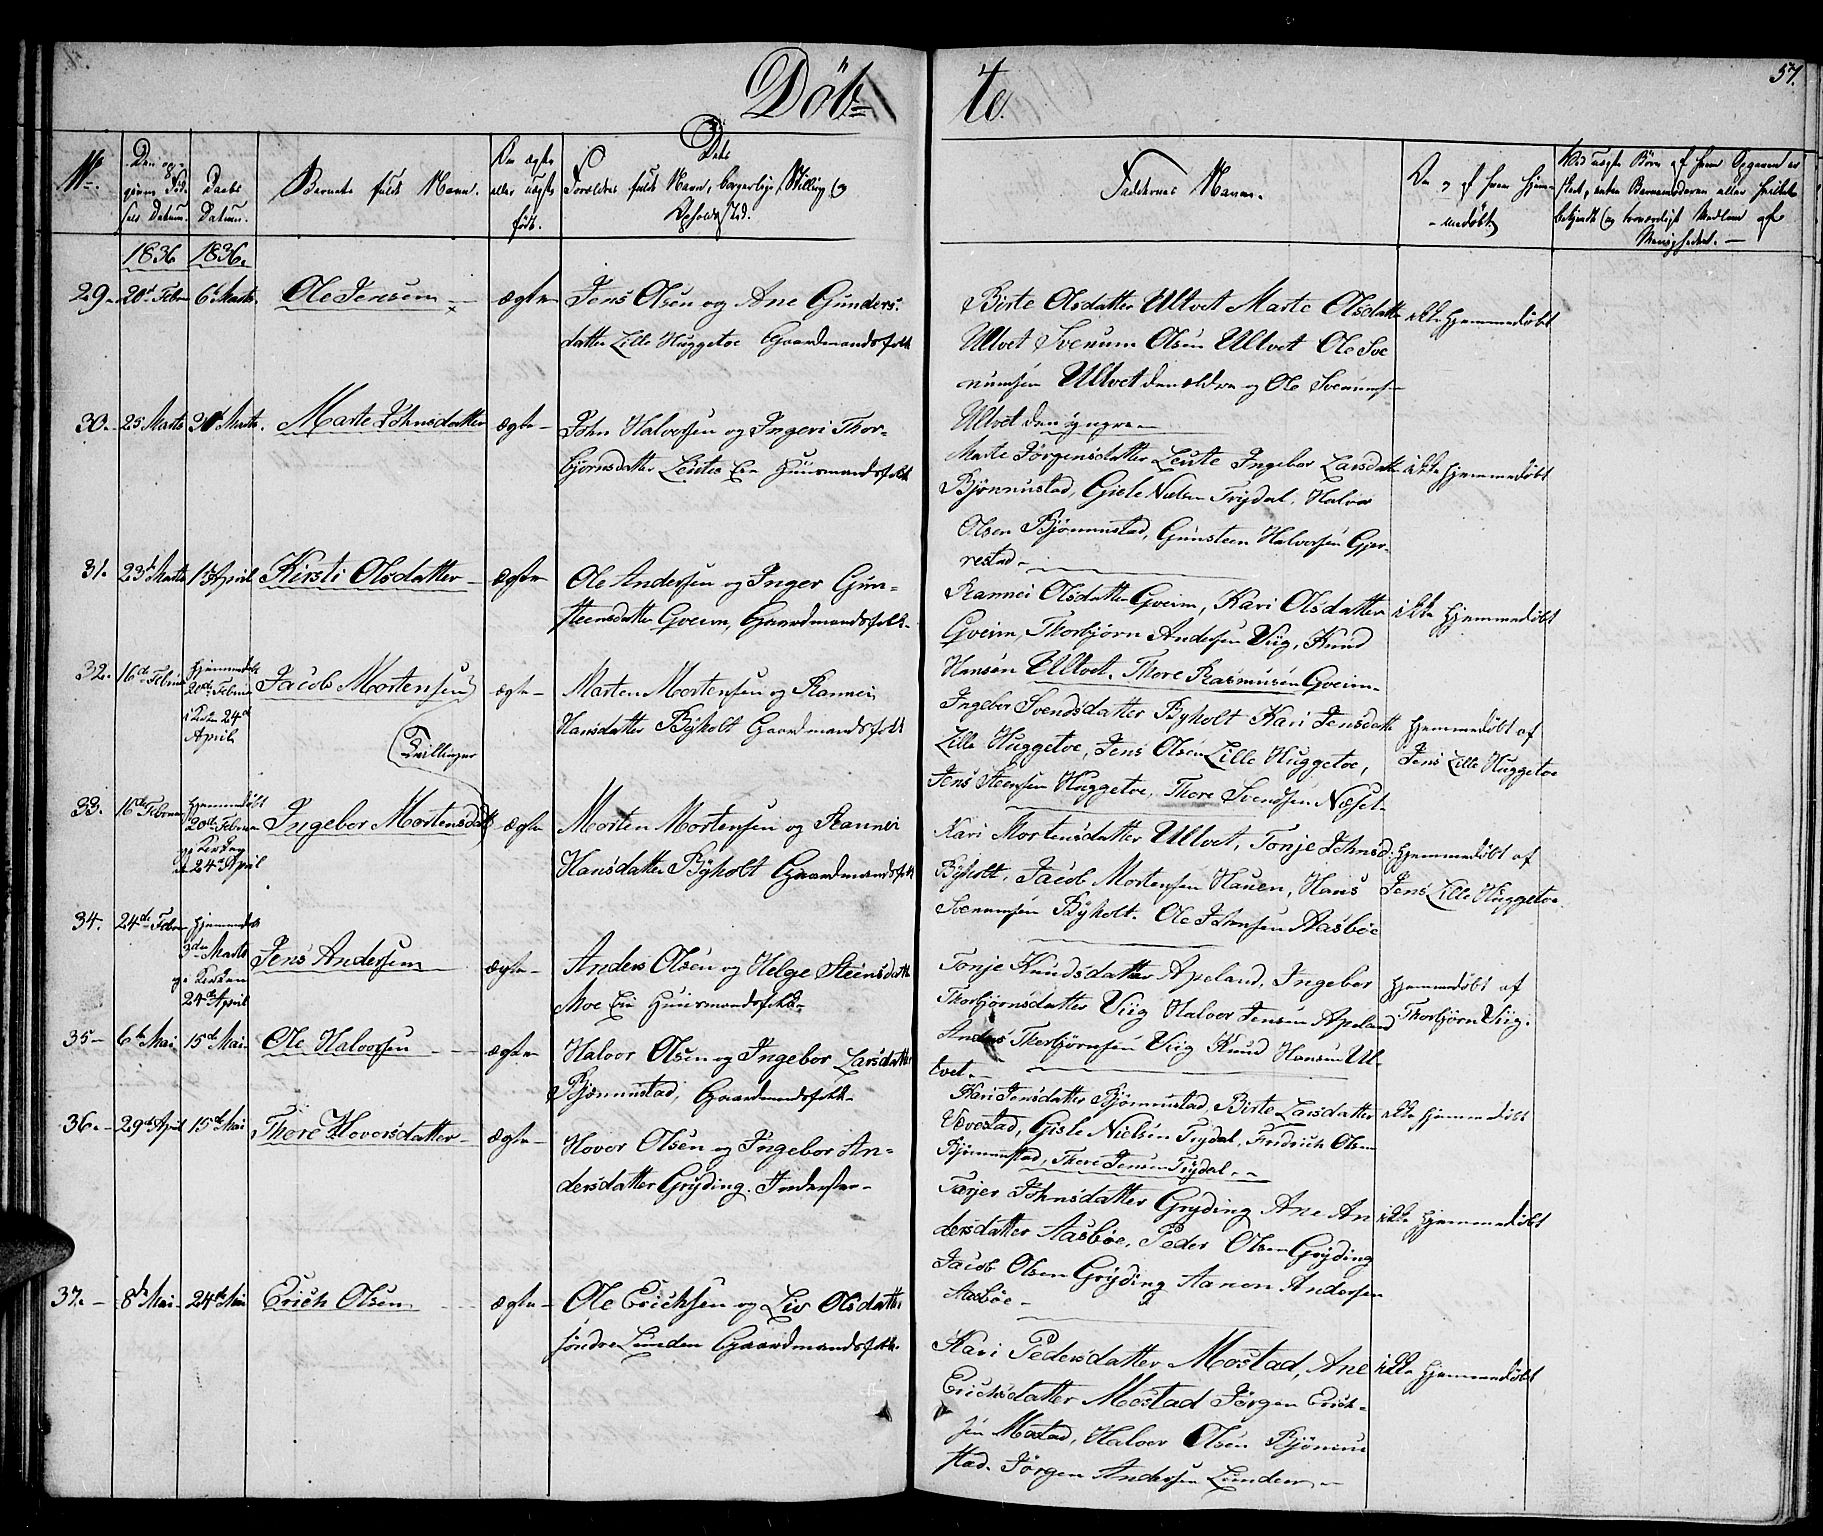 57.
Döb=
te.
No.
Den op=
givne Fød=
sels Datum.
Daabs
Datum.
Barnets fulde Navn.
Om ægte
eller uægte
født.
Dets
Forældres fulde Navn, borgerlige Stilling og
Opholdssted.
Faddernes Navne.
Om og af hvem hjem=
medøbt
1836 1836.
29. 20de Febr 6te Marts. Ole Jensen ægte
Jens Olsen og Ane Gunders=
datter Lille Huggetve Gaardmandsfolk
Birte Olsdatter Ultvet Marte Olsdatter
Ultvet Svenum Olsen Ultvet Ole Sve
numsen Ultvet den ældre og Ole Svenumsen
Ultvet den yngre
ikke hjemmedøbt
30. 25 Marts Marts. Marte Johnsdatter ægte
John Halvorsen og Ingeri Thor=
bjørnsdatter Leute Eie Huusmandsfolk
Marte Jörgensdatter Leute Ingebor Larsdatter
Björnnustad, Gisle Nielsen Trydal, Halvor
Olsen Björnnustad, Gunsteen Halvorsen Gjer=
restad
ikke hjemmedøbt
31. 23de Marts 1ste April Kirsti Olsdatter ægte
Ole Andersen og Inger Gun=
steensdatter Gveim, Gaardmandsfolk
Rannei Olsdatter Gveim, Kari Olsdatter
Gveim, Thorbjörn Andersen Viig, Knud
Hansen Ultvet, Thore Rasmusen Gveim
ikke hjemmedøbt
32. 16de Februar Hjemmedøbt
20de Februar
i Kirken 24de
April
Jacob Mortensen ægte
Tvillinger
Morten Mortensen og Rannei
Hansdatter Byholt Gaardmandsfolk
Ingebor Svendsdatter Byholt Kari Jensdatter
Lille Huggetve, Jens Olsen Lille Huggetve,
Jens Steensen Huggetve, Thore Svendsen Næset
Hjemmedøbt af
Jens Lille Huggetve
33. 16de Februar Hjemmedöbt
20de Februar
og i Kirken
d 24de April
Ingebor Mortensdatt ægte
Morten Mortensen og Rannei
Hansdatter Byholt Gaardmandsfolk
Kari Mortensdatter Ultvet, Tonje Johnsd.
Byholt, Jacob Mortensen Hauen, Hans
Svenumsen Byholt. Ole Johnsen Aasböe
Hjemmedøbt af
Jens Lille Huggetve
34. 24de Febr Hjemmedøbt
3die Marts
og i Kirken
24de April
Jens Andersen ægte
Anders Olsen og Helge Steensdatter
Moe Eie Huusmandsfolk
Tonje Knudsdatter Apeland, Ingebor
Thorbjörnsdatter Viig Halvor Jensen Apeland
Anders Thorbjörnsen Viig Knud Hansen Ul=
tvet.
Hjemmedøbt af
Thorbjörn Viig.
35 6te Mai 15de Mai Ole Halvorsen ægte
Halvor Olsen og Ingebor Larsdatter
Björnnustad, Gaardmandsfolk
Kari Jensdatter Björnnustad, Birte Larsdatter
Vevestad, Gisle Nielsen Trydal, Fredrich Olsen
Björnnustad, Thore Jensen Trydal
ikke hjemmedøbt
36. 29de April 15de Mai Thore Hovorsdatter ægte
Hovor Olsen og Ingebor An=
dersdatter Gryding. Inderster
Tarjer Johnsdatter Gryding Ane An
dersdatter Aasböe, Peder Olsen Gryding
Jacob Olsen Gryding Aanon Andersen
Aasböe
ikke hjemmedöbt
37. 8de Mai 24de Mai Erich Olsen ægte
Ole Ericksen og Liv Olsdatter
søndre Lunden Gaardmandsfolk.
Kari Pedersdatter Mostad, Ane
Erichsdatter Mostad Jörgen Erich=
sen Mostad, Halvor Olsen Björnnu
stad. Jörgen Andersen Lunden
ikke hjemmedøbt